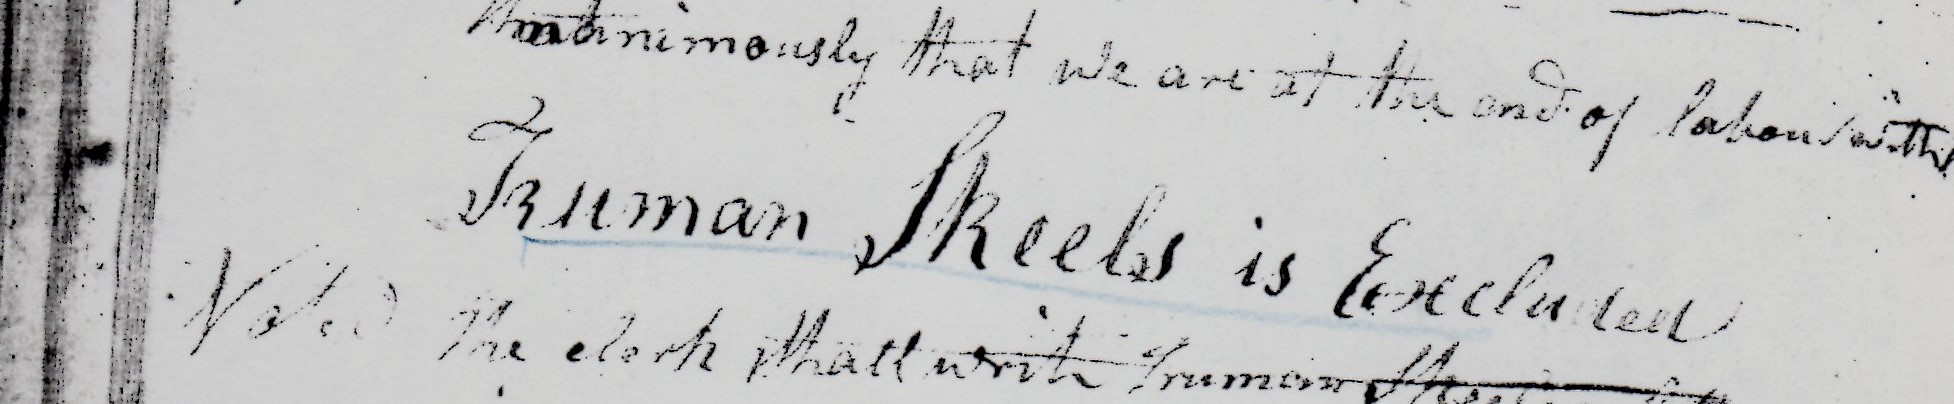 unanimously that we are at the end of labour with
Truman Skeels is Excluded
Voted The clerk shall write Truman Skeels